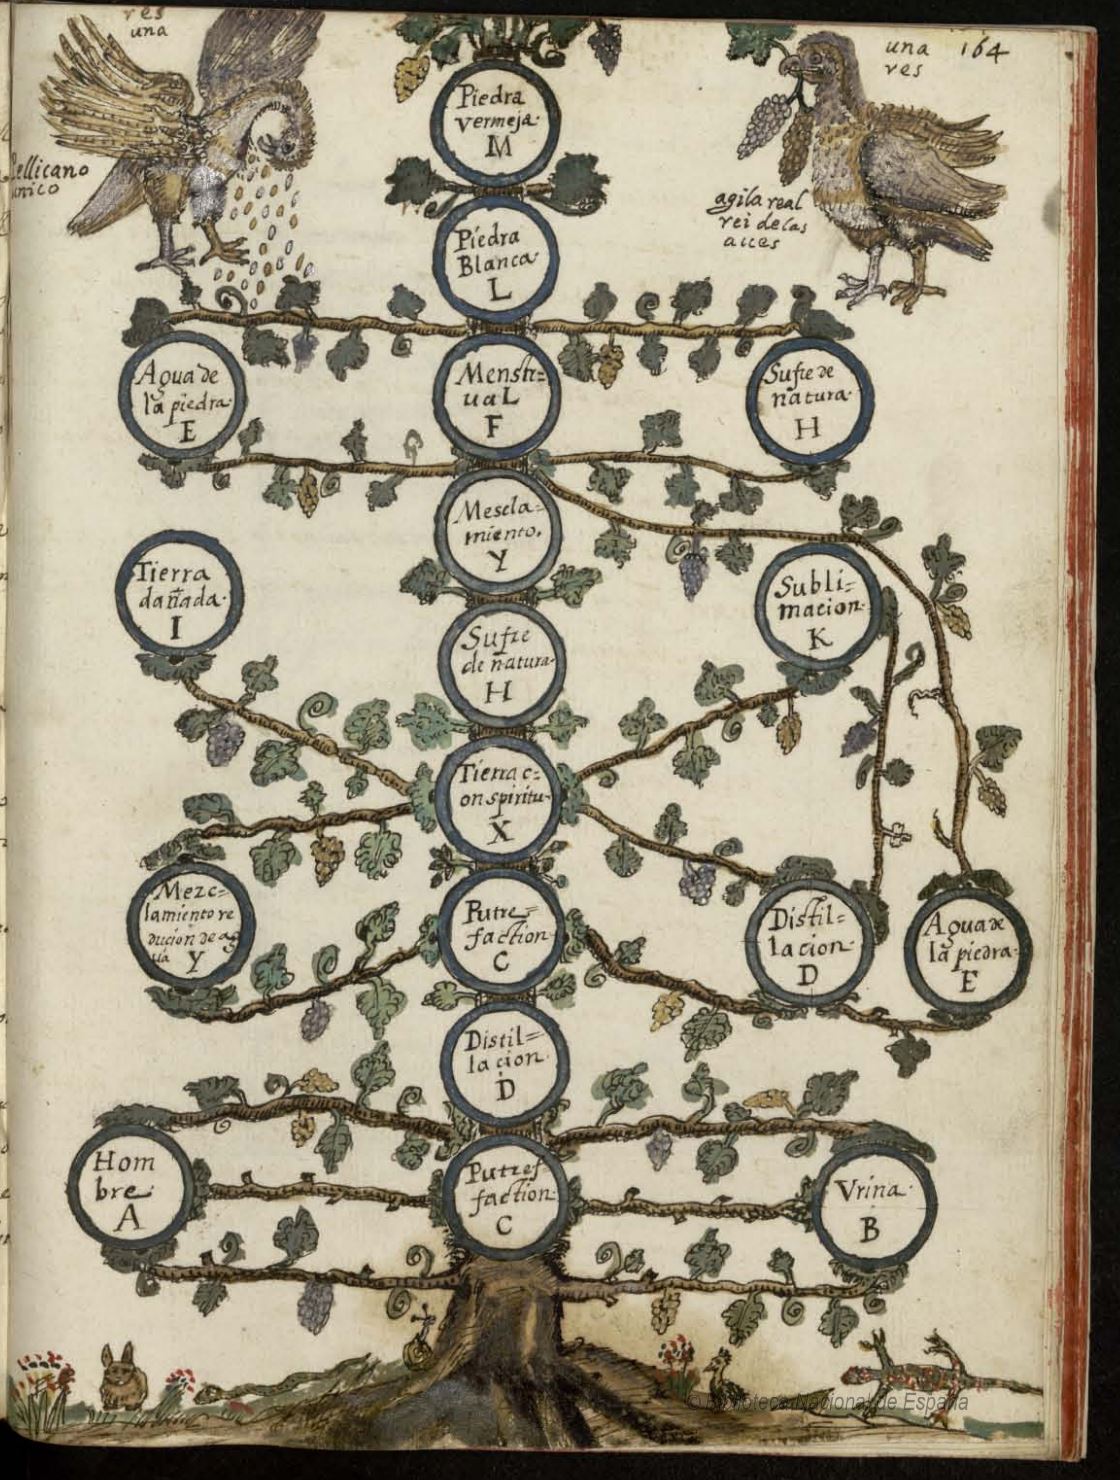 res
una
una 164
ves
Pellicano
unico
agila real
rei de las
aues
Piedra
vermeja
M
Piedra
Blanca
L
Agua de
la piedra
E
Menstr=
uaL
F
Sufre de
natura
H
Mescla-
miento
Y
Tierra
dañada
I
Subli=
macion
K
Sufre
de natura
H
Tierra c=
on spiritu
X
Mezc=
lamiento re
ducion de ag
ua Y
Putre=
faction
C
Distil=
lacion
D
Agua de
la piedra
E
Distil=
lacion
D
Hom
bre
A
Putref
faction
C
Vrina
B
© Biblioteca Nacional de España